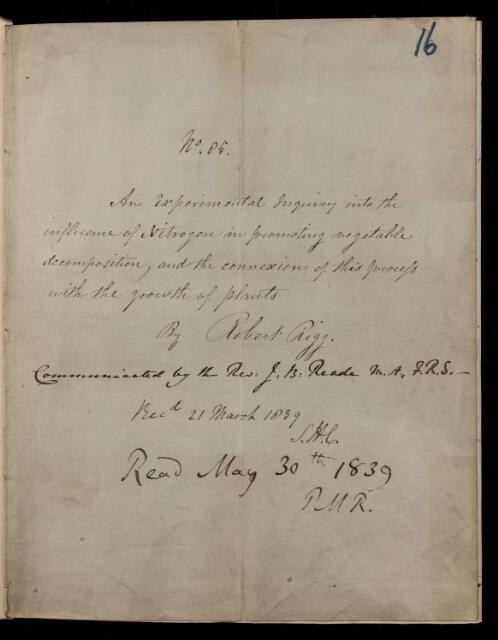 16
No. 85.
An Experimental Inquiry into the
influence of Nitrogen in promoting vegetable
decomposition, and the connexion of this process
with the growth of plants
By Robert Rigg.
Communicated by the Rev: J. B. Reade M.A. F.R.S. —
Recd 21 March 1839
S.H.C.
Read May 30th 1839
P M R.